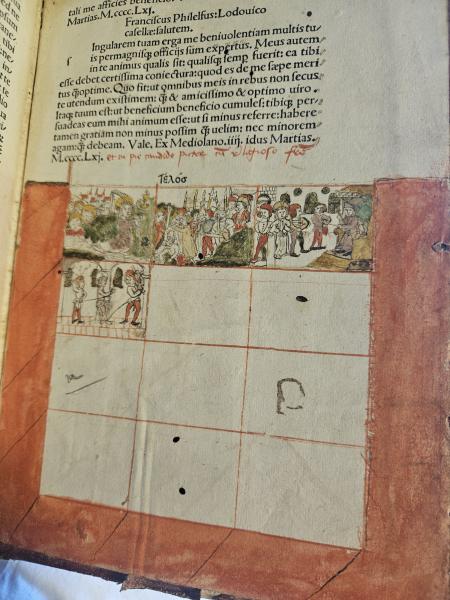 tali me afficies beneficio
Martias. M. cccc. Lxj.
Franciscus Philelfus: Lodouico
casellæ: salutem.
Ingularem tuam erga me beniuolentiam multis tu⸗
s
is permagnisq; officijs sum expertus. Meus autem
in te animus qualis sit: qualisq; semp fuerit: ea tibi
esse debet certissima coniectura: quod es de me sæpe meri⸗
tus q̃optime. Quo fit: ut omnibus meis in rebus non secus
te utendum existimem: q̃ & amicissimo & optimo uiro.
Itaq; tuum est: ut beneficium beneficio cumules: tibiq; per⸗
suadeas eum mihi animum esse: ut si minus referre: habere
tamen gratiam non minus possim q̃ uelim: nec minorem
agamq; debeam. Vale. Ex Mediolano. iiij. idus Martias.
M. cccc. Lxj.
Τέλος